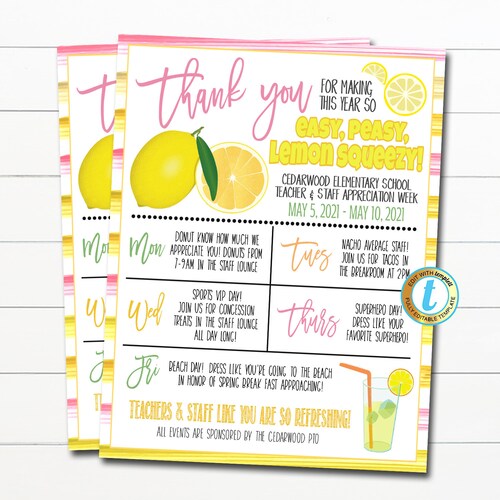 Thank you
FOR MAKING
THIS YEAR SO
EASY, PEASY,
LEMON SQUEEZY!
CEDARWOOD ELEMENTARY SCHOOL
TEACHER & STAFF APPRECIATION WEEK
MAY 5, 2021 - MAY 10, 2021
Mon
DONUT KNOW HOW MUCH WE
APPRECIATE YOU! DONUTS FROM
7-9AM IN THE STAFF LOUNGE
Tues
NACHO AVERAGE STAFF!
JOIN US FOR TACOS IN
THE BREAKROOM AT 2PM
Wed
SPORTS VIP DAY!
JOIN US FOR CONCESSION
TREATS IN THE STAFF LOUNGE
ALL DAY LONG!
Thurs
SUPERHERO DAY!
DRESS LIKE YOUR
FAVORITE SUPERHERO!
EDIT WITH templett
t
FULLY EDITABLE TEMPLATE
Fri
BEACH DAY! DRESS LIKE YOU'RE GOING TO THE BEACH
IN HONOR OF SPRING BREAK FAST APPROACHING!
TEACHERS & STAFF LIKE YOU ARE SO REFRESHING!
ALL EVENTS ARE SPONSORED BY THE CEDARWOOD PTO